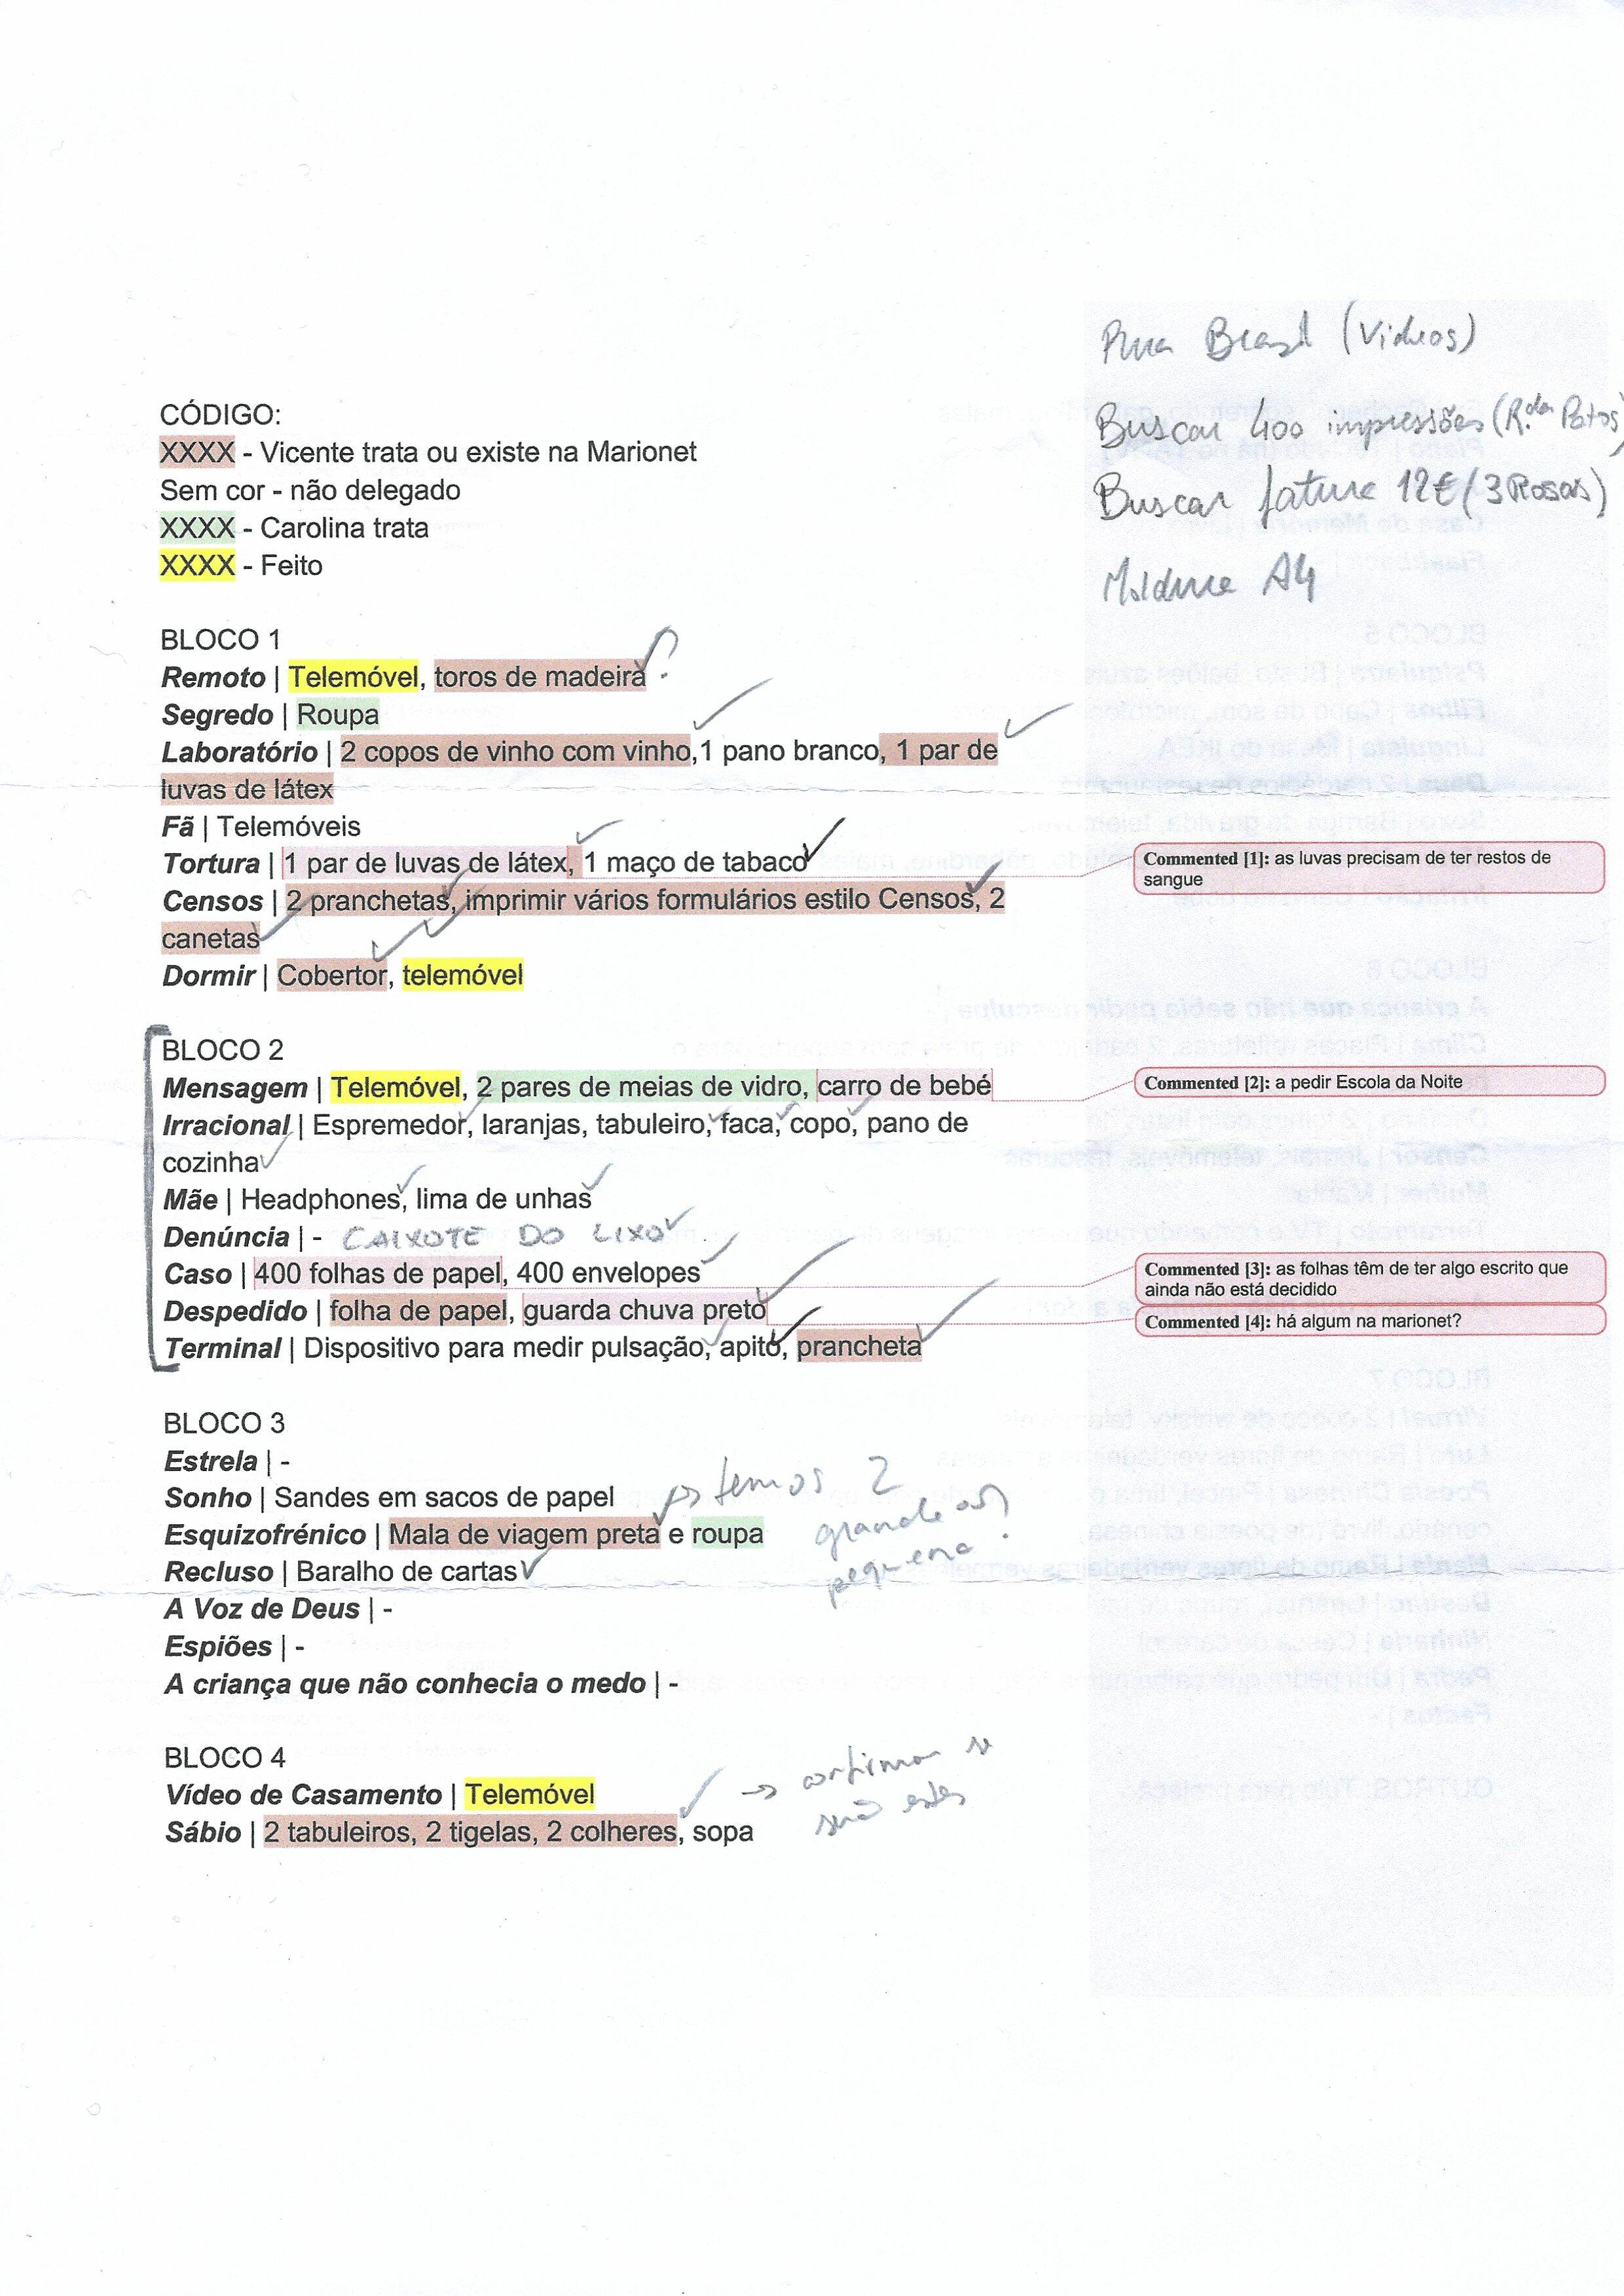 Brasil (Videos)
Buscar 400 impressões (R. dos Patos)
Buscar fatura 12€ (3 Rosas)
Moldura A4
CÓDIGO:
XXXX - Vicente trata ou existe na Marionet
Sem cor - não delegado
XXXX - Carolina trata
XXXX - Feito
BLOCO 1
Remoto | Telemóvel, toros de madeira ?
Segredo | Roupa
Laboratório | 2 copos de vinho com vinho,1 pano branco, 1 par de
luvas de látex
Fã | Telemóveis
Tortura | 1 par de luvas de látex, 1 maço de tabaco
Commented [1]: as luvas precisam de ter restos de
sangue
Censos | 2 pranchetas, imprimir vários formulários estilo Censos, 2
canetas
Dormir | Cobertor, telemóvel
BLOCO 2
Mensagem | Telemóvel, 2 pares de meias de vidro, carro de bebé
Commented [2]: a pedir Escola da Noite
Irracional | Espremedor, laranjas, tabuleiro, faca, copo, pano de
cozinha
Mãe | Headphones, lima de unhas
Denúncia | - CAIXOTE DO LIXO
Caso | 400 folhas de papel, 400 envelopes
Commented [3]: as folhas têm de ter algo escrito que
ainda não está decidido
Despedido | folha de papel, guarda chuva preto
Commented [4]: há algum na marionet?
Terminal | Dispositivo para medir pulsação, apito, prancheta
BLOCO 3
Estrela | -
Sonho | Sandes em sacos de papel
Esquizofrénico | Mala de viagem preta e roupa
→ temos 2
grande ou
pequena?
Recluso | Baralho de cartas
A Voz de Deus | -
Espiões | -
A criança que não conhecia o medo | -
BLOCO 4
Vídeo de Casamento | Telemóvel
Sábio | 2 tabuleiros, 2 tigelas, 2 colheres, sopa
→ confirmar se
são estes